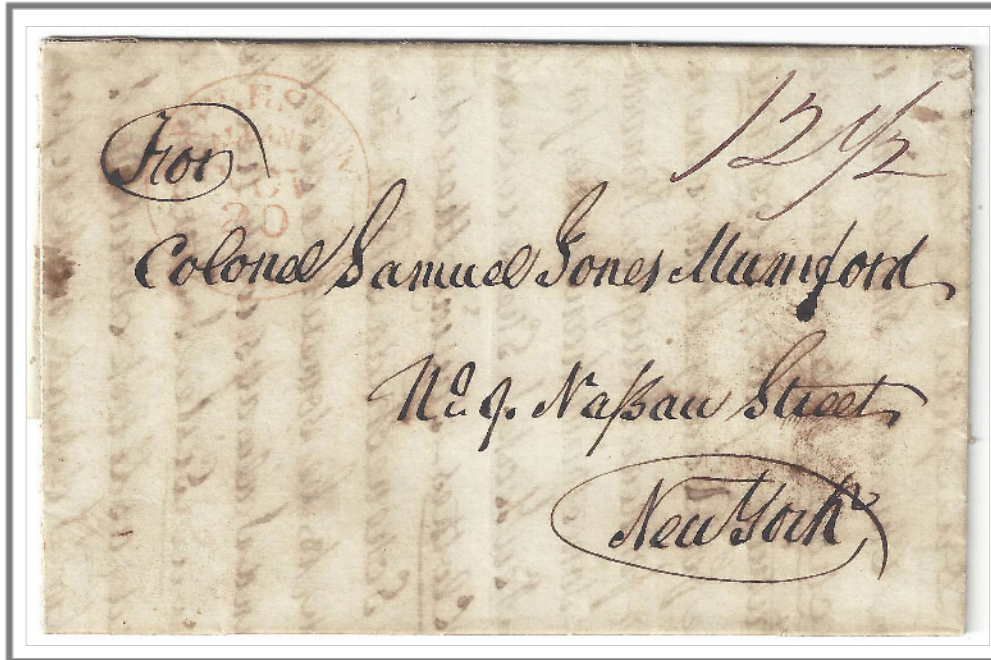 12 1/2
For
20
Colonel Samuel Jones Mumford,
No. 9. Nassau Street,
New York